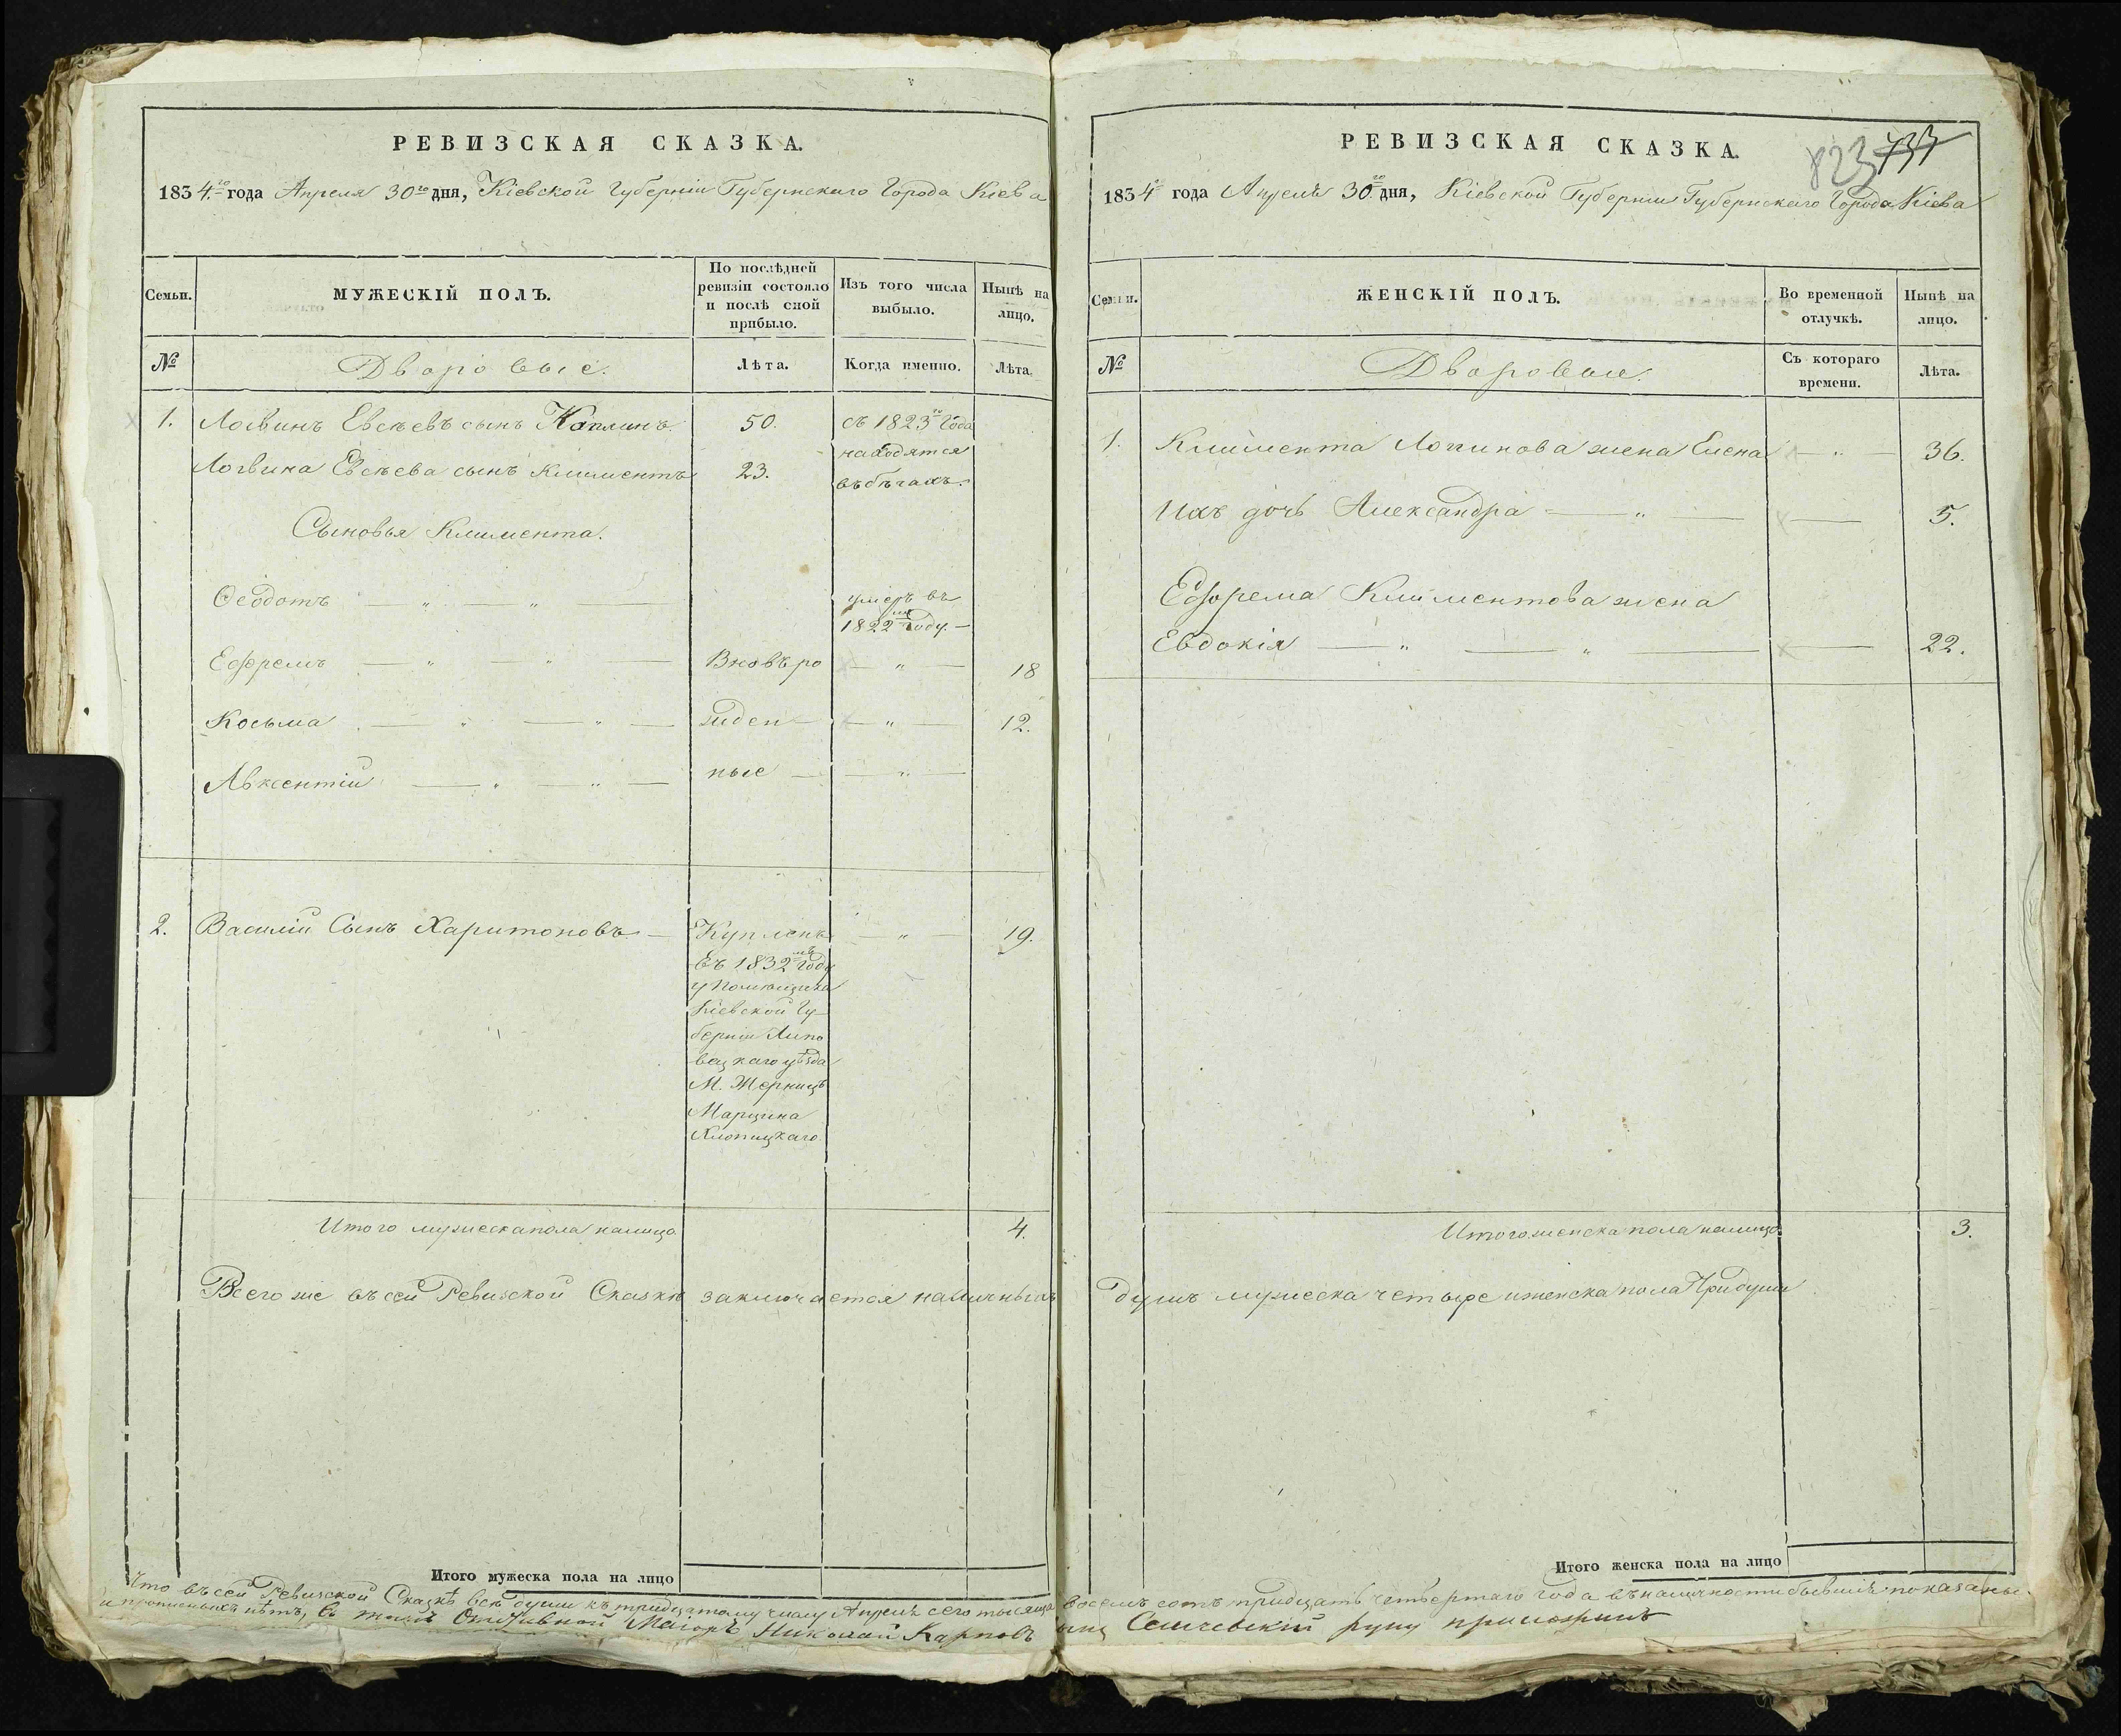 РЕВИЗСКАЯ СКАЗКА.
1834.го года Апреля 30го дня, Кіевской Губерніи Губернскаго Города Кіева
Семьи.
МУЖЕСКІЙ ПОЛЪ.
По послѣдней
ревизіи состояло
и послѣ сной
прибыло.
Изъ того числа
выбыло.
Нынѣ на
лицо.
№
Дворовые.
Лѣта.
Когда именно.
Лѣта.
1. Логвинъ Евсѣевъ сынъ Каплинъ. 50. съ 1823го Года
находятся
Логвина Евсѣева сынъ Климентъ 23.
въ бѣгахъ.
Сыновья Климента.
Ѳеодотъ — " — " — умеръ въ
1822мъ Году. —
Ефремъ — " — " — Вновь ро — " — 18
Косьма — " — " — жден — — " — 12.
Авксентій — " — " — ные — — " —
2. Василій Сынъ Харитоновъ. — Купленъ — " — 19.
въ 1832мъ Году
у Помѣщика
Кіевской Гу-
берніи Липо
вецкаго уѣзда
М. Жорнищъ
Марцина
Хлопицкаго.
Итого мужеска пола налицо. 4.
Всего же въ сей Ревизской Сказкѣ заключается наличныхъ
Итого мужеска пола на лицо
Что въ сей Ревизской Сказкѣ все души къ тридцатому числу Апреля сего тысяща
и прописныхъ нѣтъ, въ томъ Отставной Маіоръ Николай Карповъ
РЕВИЗСКАЯ СКАЗКА.
823 733
1834го года Апреля 30.го дня, Кіевской Губерніи Губернскаго Города Кіева
Семьи.
ЖЕНСКІЙ ПОЛЪ.
Во временной
отлучкѣ.
Нынѣ на
лицо.
№
Дворовые.
Съ котораго
времени.
Лѣта.
1. Климента Логинова жена Елена — " — 36.
Ихъ дочь Александра — " — — 5.
Ефрема Климентова жена
Евдокія — " — " — — 22.
Итого женска пола налицо. 3.
душъ мужеска четыре и женска пола Три души
Итого женска пола на лицо
восемь сотъ тридцать четвертаго года въ наличности бывшіе показаны.
сынъ Семчевскій руку приложилъ